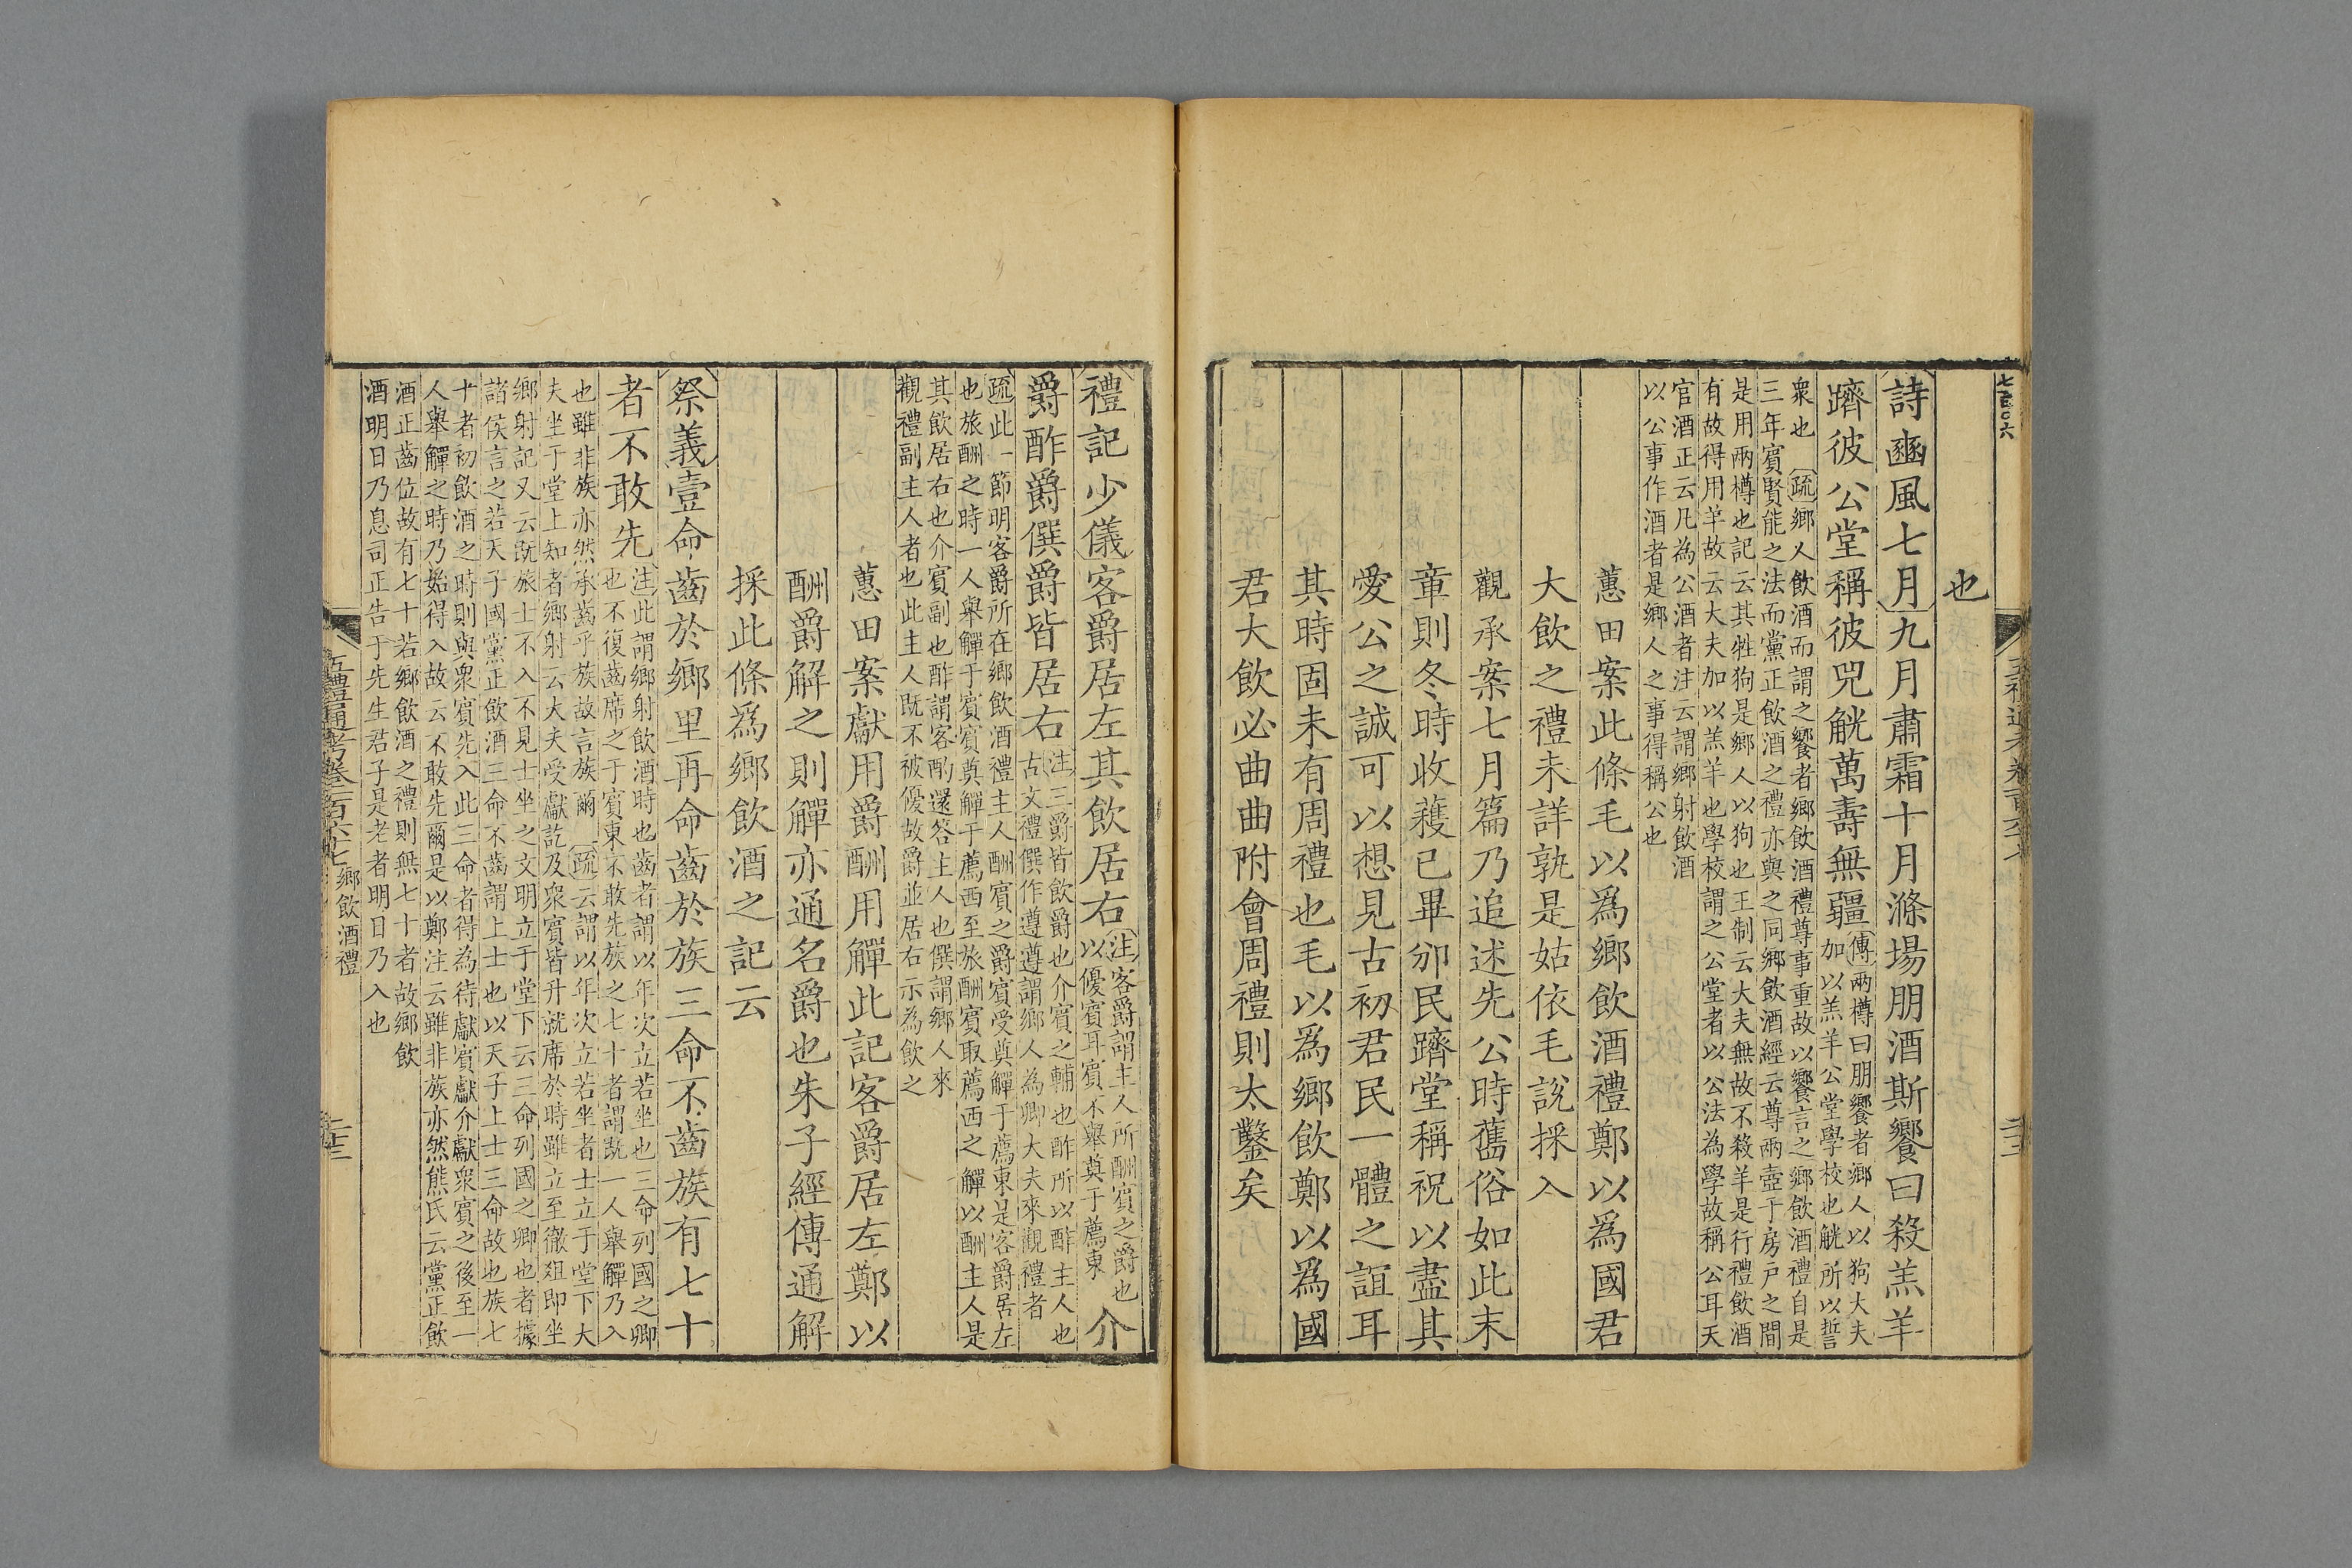 七百〇六
也
詩豳風七月九月肅霜十月滌場朋酒斯饗曰殺羔羊
躋彼公堂稱彼兕觥萬壽無疆傳兩樽曰朋饗者鄉人以狗大夫
加以羔羊公堂學校也觥所以誓
衆也疏鄉人飲酒而謂之饗者鄉飲酒禮尊事重故以饗言之鄉飲酒禮自是
三年賓賢能之法而黨正飲酒之禮亦與之同鄉飲酒經云尊兩壺于房戸之間
是用兩樽也記云其牲狗是鄉人以狗也王制云大夫無故不殺羊是行禮飲酒
有故得用羊故云大夫加以羔羊也學校謂之公堂者以公法為學故稱公耳天
官酒正云凡為公酒者注云謂鄉射飲酒
以公事作酒者是鄉人之事得稱公也
蕙田案此條毛以爲鄉飲酒禮鄭以爲國君
大飲之禮未詳孰是姑依毛說採入
觀承案七月篇乃追述先公時舊俗如此末
章則冬時收蓛已畢邠民躋堂稱祝以盡其
愛公之誠可以想見古初君民一體之誼耳
其時固未有周禮也毛以爲鄉飲鄭以爲國
君大飲必曲曲附會周禮則太鑿矣
禮記少儀客爵居左其飲居右注客爵謂主人所酬賓之爵也
以優賓耳賓不舉奠于薦東介
爵酢爵僎爵皆居右注三爵皆飲爵也介賓之輔也酢所以酢主人也
古文禮僎作遵遵謂鄉人為卿大夫來觀禮者
疏此一節明客爵所在鄉飲酒禮主人酬賓之爵賓受奠觶于薦東是客爵居左
也旅酬之時一人舉觶于賓賓奠觶于薦西至旅酬賓取薦西之觶以酬主人是
其飲居右也介賓副也酢謂客酌還答主人也僎謂鄉人來
觀禮副主人者也此主人既不被優故爵並居右示為飲之
蕙田案獻用爵酬用觶此記客爵居左鄭以
酬爵解之則觶亦通名爵也朱子經傳通解
採此條爲鄉飲酒之記云
祭義壹命齒於鄉里再命齒於族三命不齒族有七十
者不敢先注此謂鄉射飲酒時也齒者謂以年次立若坐也三命列國之卿
也不復齒席之于賓東不敢先族之七十者謂既一人舉觶乃入
也雖非族亦然承齒乎族故言族爾疏云謂以年次立若坐者士立于堂下大
夫坐于堂上知者鄉射云大夫受獻訖及衆賓皆升就席於時雖立至徹俎即坐
鄉射記又云既旅士不入不見士坐之文明立于堂下云三命列國之卿也者據
諸侯言之若天子國黨正飲酒三命不齒謂上士也以天子上士三命故也族七
十者初飲酒之時則與衆賓先入此三命者得為待獻賓獻介獻衆賓之後至一
人舉觶之時乃始得入故云不敢先爾是以鄭注云雖非族亦然熊氏云黨正飲
酒正齒位故有七十若鄉飲酒之禮則無七十者故鄉飲
酒明日乃息司正告于先生君子是老者明日乃入也
五禮通考卷一百六十七 鄉飲酒禮